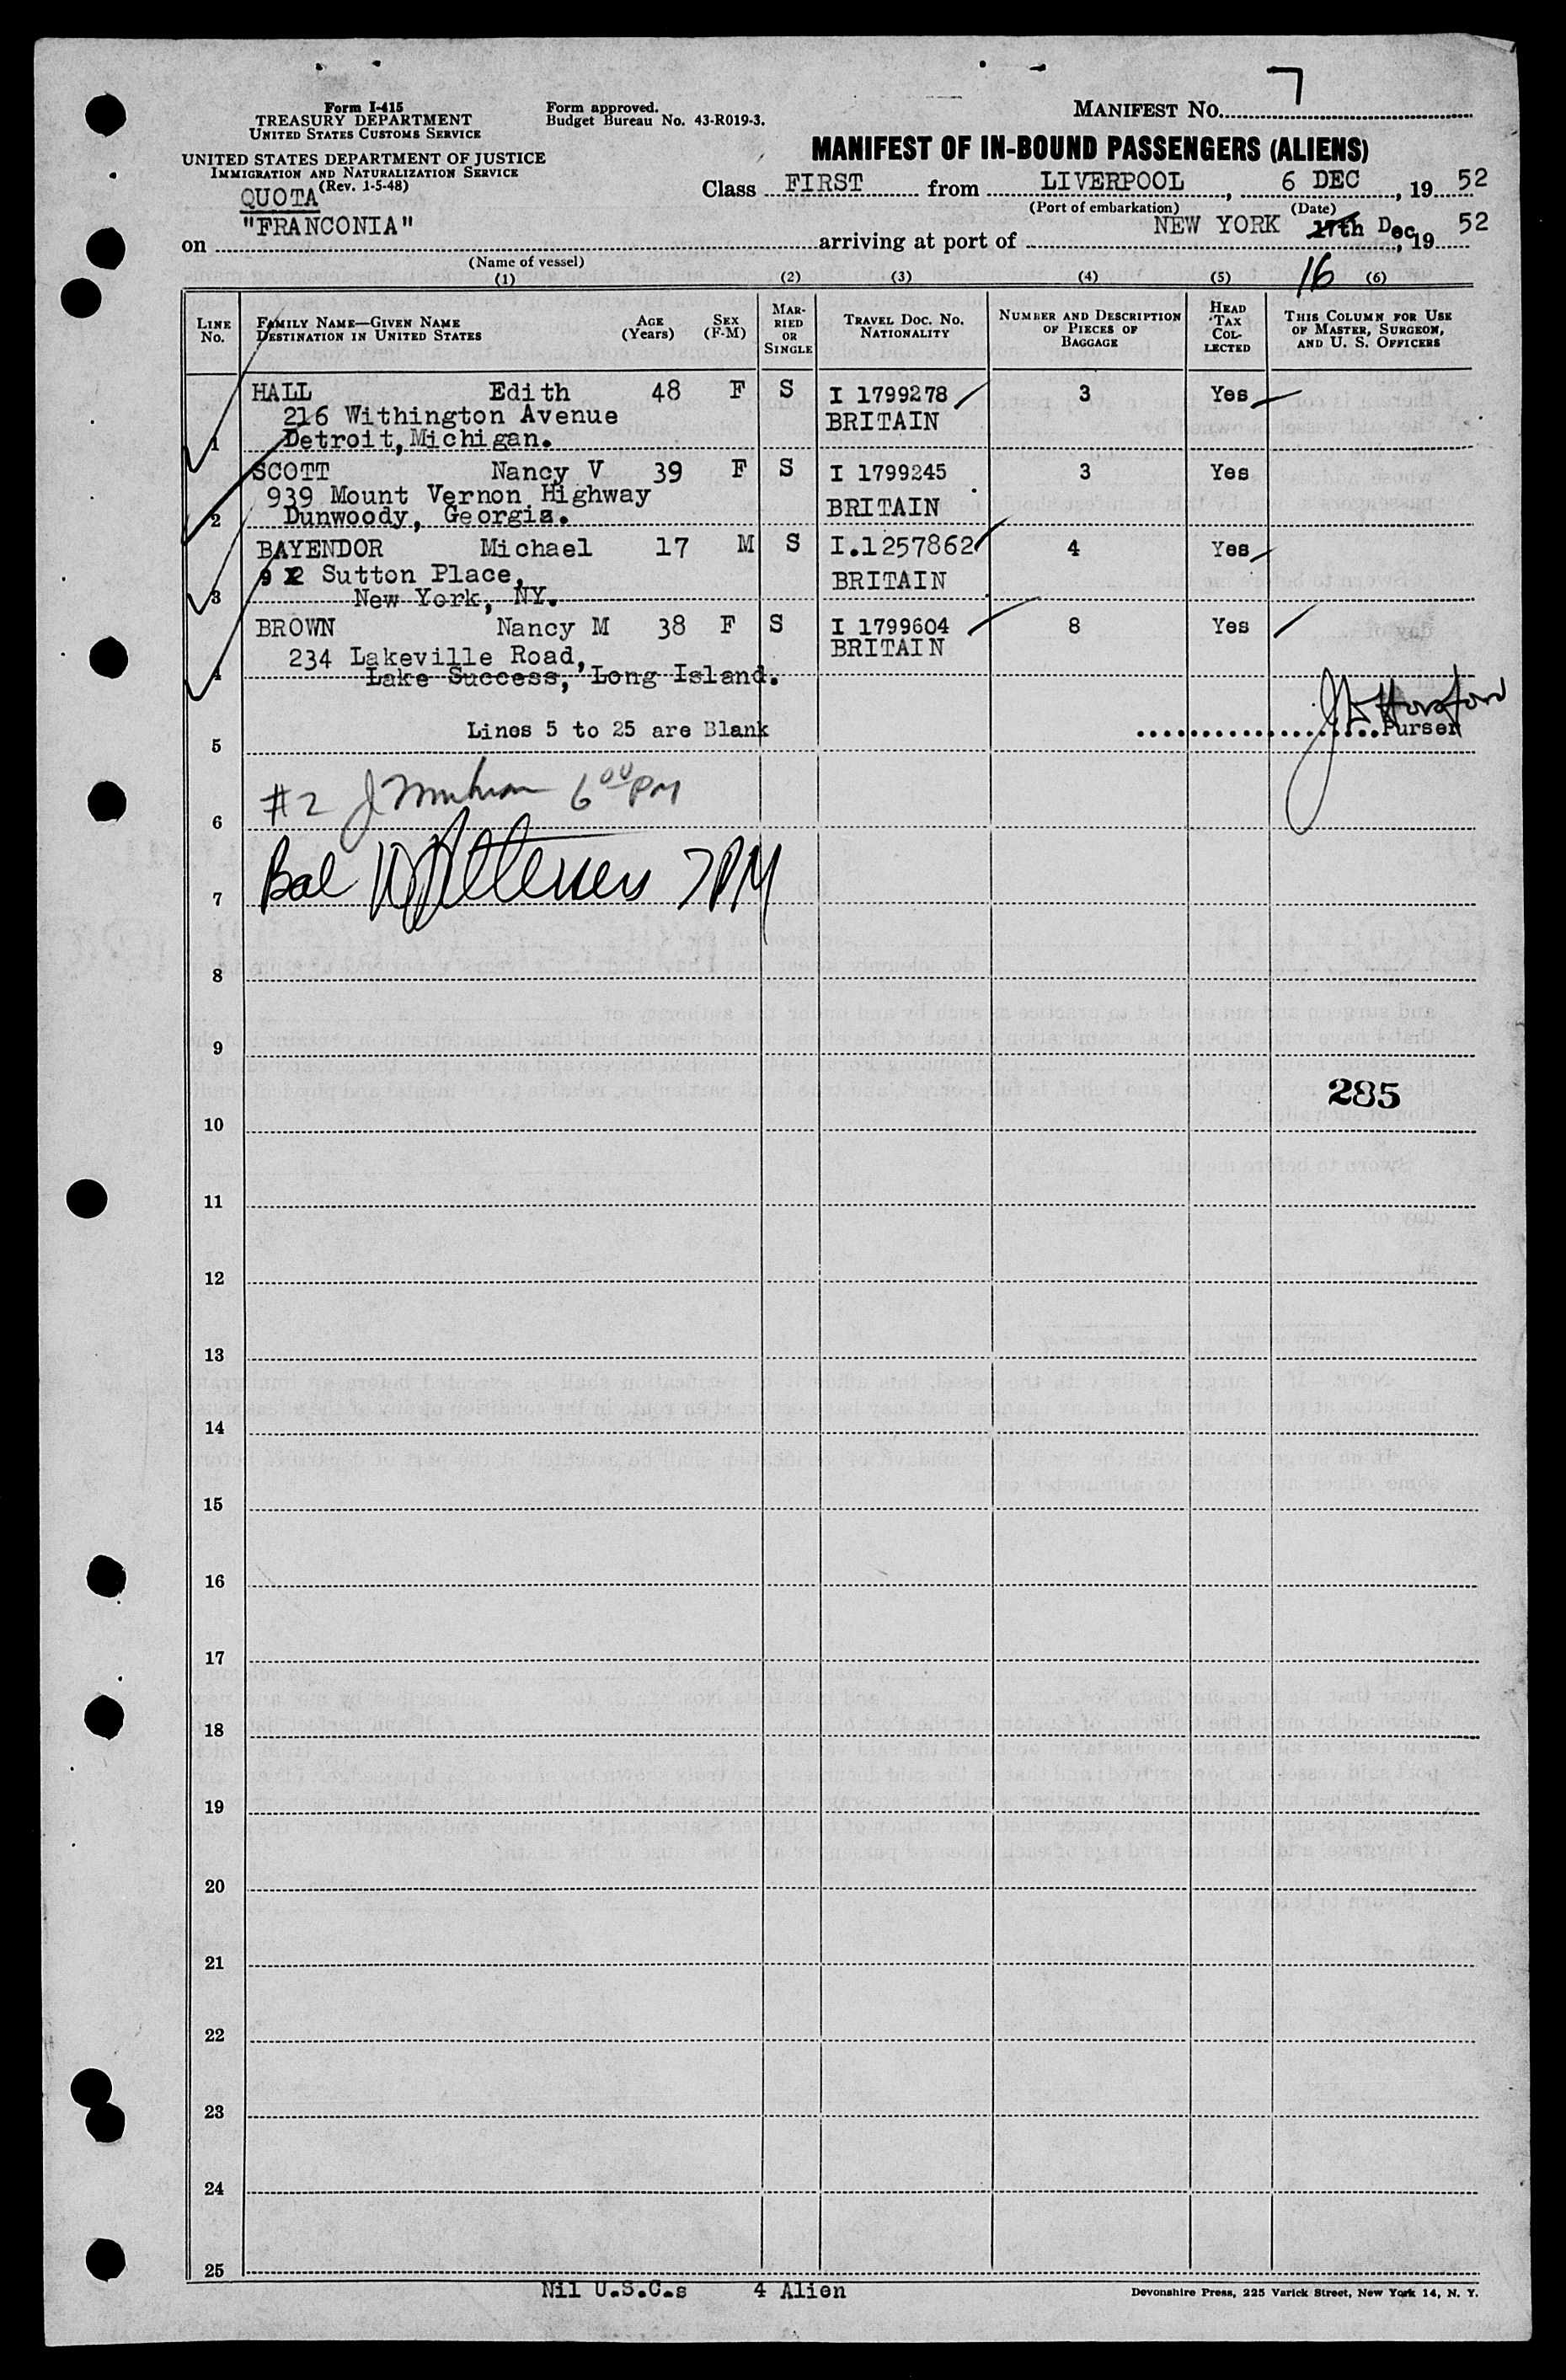 7
Form I-415
TREASURY DEPARTMENT
UNITED STATES CUSTOMS SERVICE
Form approved.
Budget Bureau No. 43-R019-3.
MANIFEST No.
UNITED STATES DEPARTMENT OF JUSTICE
IMMIGRATION AND NATURALIZATION SERVICE
(Rev. 1-5-48)
MANIFEST OF IN-BOUND PASSENGERS (ALIENS)
QUOTA
Class FIRST from LIVERPOOL, 6 DEC, 19 52
(Port of embarkation) (Date)
on "FRANCONIA" arriving at port of NEW YORK 17th Dec, 19 52
16
(Name of vessel)
(1) (2) (3) (4) (5) (6)
LINE No. FAMILY NAME—GIVEN NAME DESTINATION IN UNITED STATES AGE (Years) SEX (F-M) MARRIED OR SINGLE TRAVEL DOC. NO. NATIONALITY NUMBER AND DESCRIPTION OF PIECES OF BAGGAGE HEAD TAX COLLECTED THIS COLUMN FOR USE OF MASTER, SURGEON, AND U. S. OFFICERS
HALL Edith 48 F S I 1799278 3 Yes
216 Withington Avenue BRITAIN
1 Detroit, Michigan.
SCOTT Nancy V 39 F S I 1799245 3 Yes
939 Mount Vernon Highway BRITAIN
2 Dunwoody, Georgia.
BAYENDOR Michael 17 M S I.1257862 4 Yes
Sutton Place, BRITAIN
3 New York, NY.
BROWN Nancy M 38 F S I 1799604 8 Yes
234 Lakeville Road, BRITAIN
4 Lake Success, Long Island.
Lines 5 to 25 are Blank Purser
5
#2 6 00 PM
6
Bal 7PM
7
8
9
285
10
11
12
13
14
15
16
17
18
19
20
21
22
23
24
25
Nil U.S.C.s 4 Alien
Devonshire Press, 225 Varick Street, New York 14, N. Y.